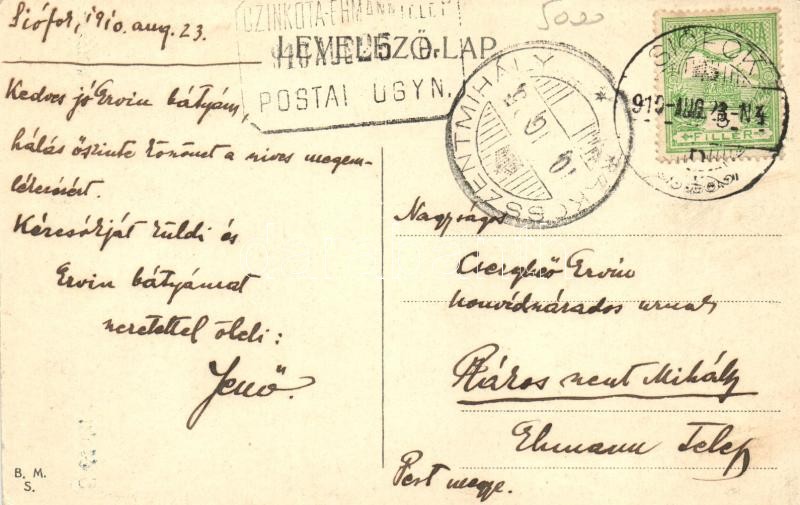 Siófok, 1910. aug. 23.
CZINKOTA-EHMANNTELEP
910 AUG 25
POSTAI ÜGYN.
LEVELEZŐ-LAP
5000
RÁKOSSZENTMIHÁLY
SIÓFOK
910 AUG 23 N4
MAGY. KIR. POSTA
FILLÉR
Kedves jó Ervin bátyám,
hálás őszinte köszönet a szives megem-
lékezésért.
Kézcsókját küldi és
Ervin bátyámat
szeretettel öleli:
Jenő.
Nagyságos
Cserghő Ervin
honvédszázados urnak
Rákos szent Mihály
Ehmann Telep
Pest megye.
B. M.
S.